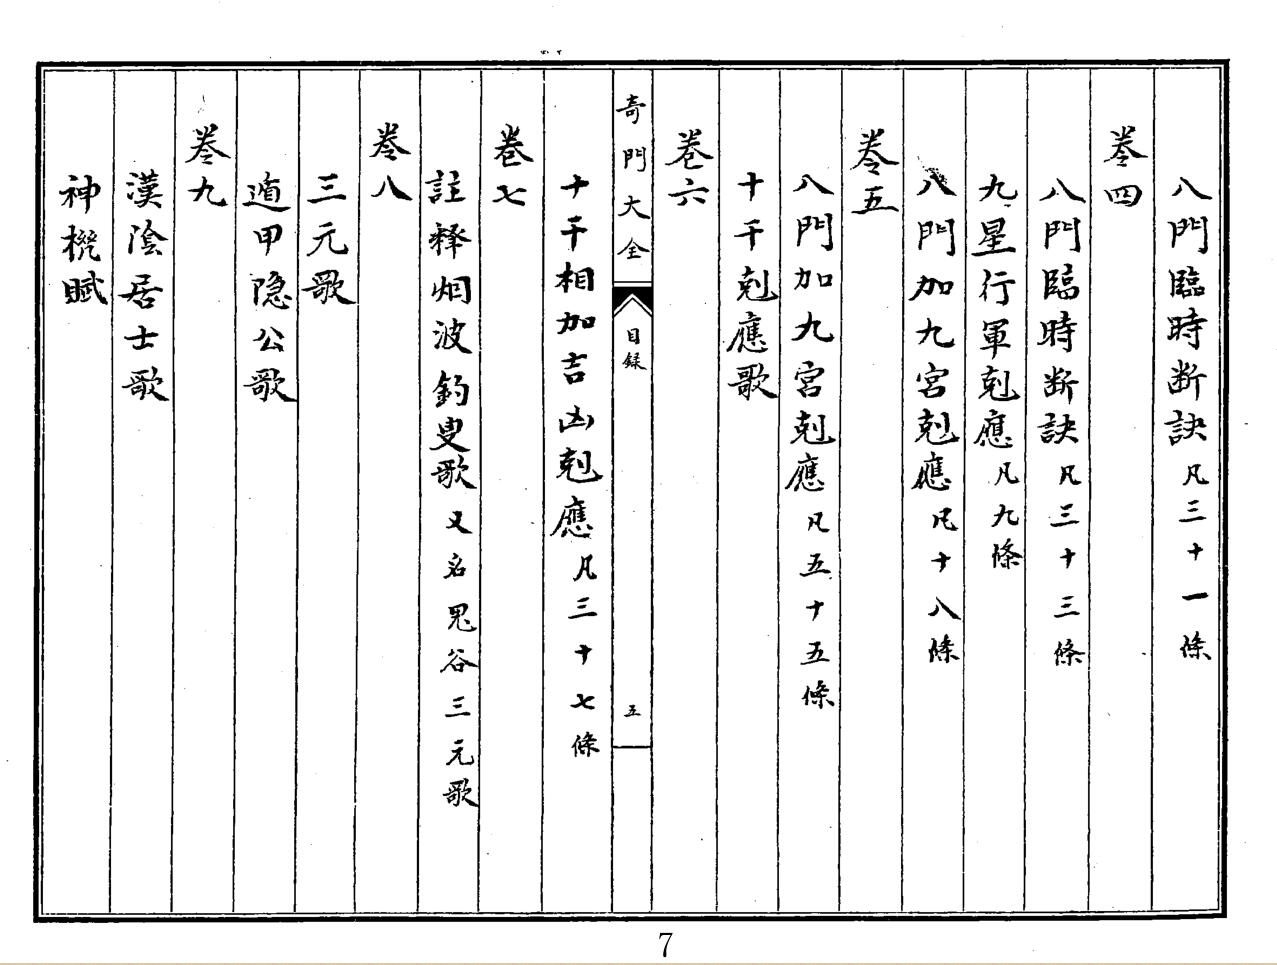 八門臨時断訣凡三十一條
卷四
八門臨時断訣凡三十三條
九星行軍剋應凡九條
八門加九宮剋應凡十八條
卷五
八門加九宮剋應凡五十五條
十干剋應歌
卷六
奇門大全 目録 五
十干相加吉凶剋應凡三十七條
卷七
註释烟波釣叟歌又名鬼谷三元歌
卷八
三元歌
遁甲隐公歌
卷九
漢陰居士歌
神機賦
7